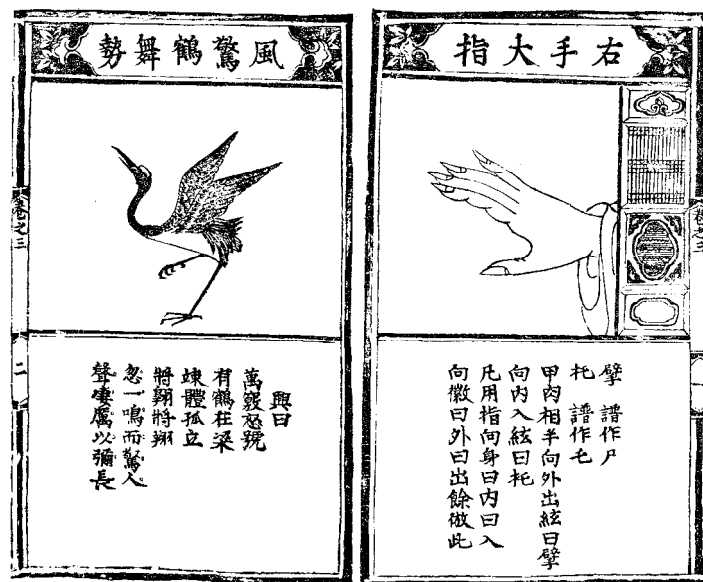 右手大指
擘　譜作尸
托　譜作乇
甲肉相半向外出絃曰擘
向内入絃曰托
凡用指向身曰内曰入
向徽曰外曰出餘倣此
卷之三
風驚鶴舞勢
興曰
萬竅怒號
有鶴在梁
竦體孤立
將翺將翔
忽一鳴而驚人
聲凄厲以彌長
卷之三
二